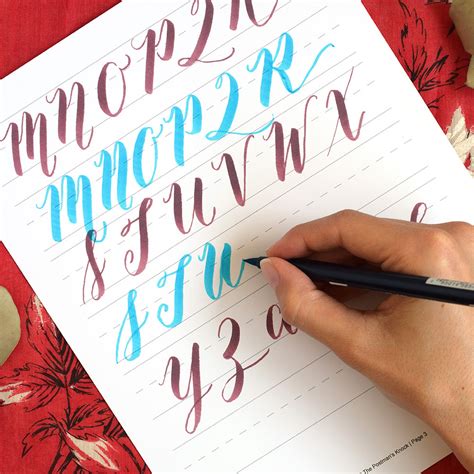 MNOPQR
MNOPQR
STUVWX
STU
YZa
The Postman's Knock | Page 3